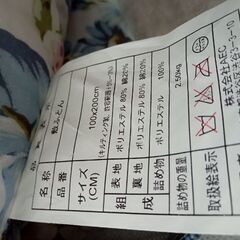 品質表示
名称 敷ふとん
品番
サイズ(CM) 100x200cm
(キルティング前、許容範囲
組成 表地 ポリエステル 80% 綿20%
裏地 ポリエステル 80% 綿20%
詰め物 ポリエステル 100%
詰め物の重量 2.50kg
取扱絵表示
株式会社AEC
3-3-10